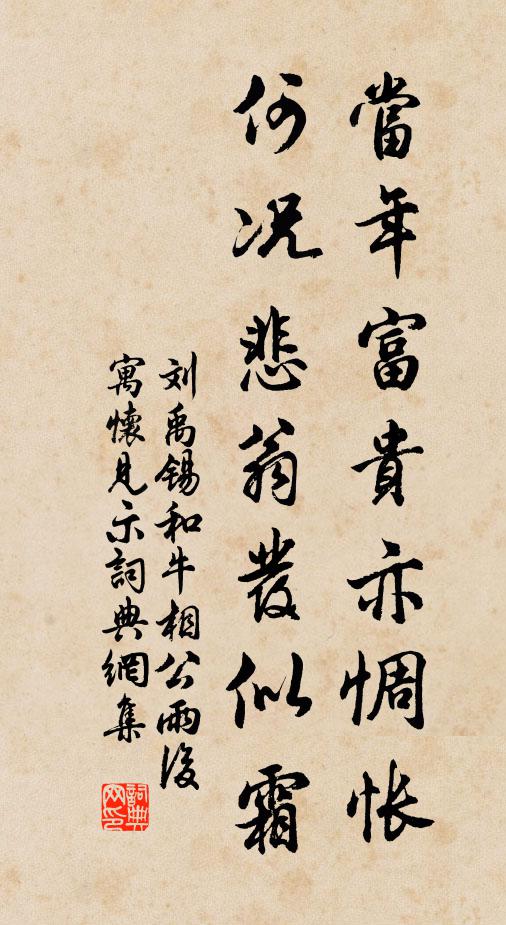 當年富貴亦惆悵
何况悲翁發似霜
刘禹錫和牛相公雨後
寓懷見示詞典網集
詞典网印